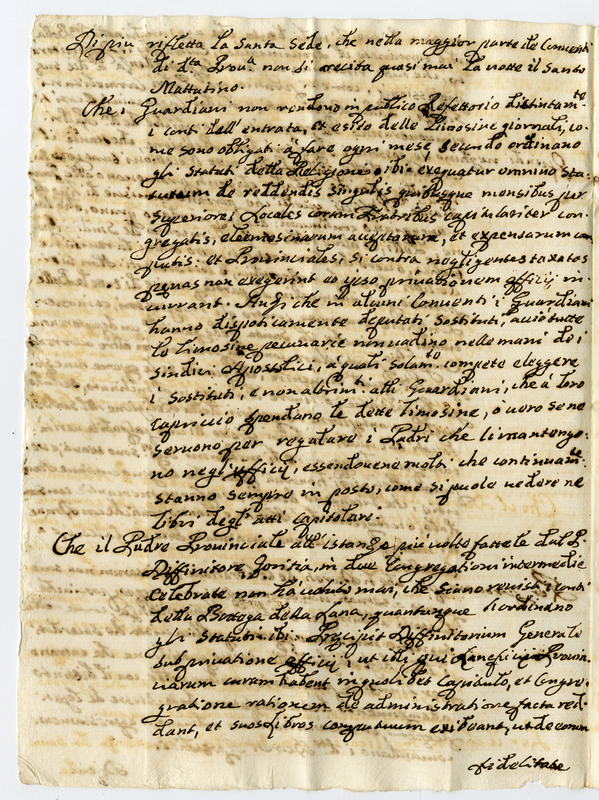 Di piu rifletta la Santa Sede, che nella maggior parte de Conventi
di d.ta Prov.a non si recita quasi mai la notte il Santo
Mattutino.
Che i Guardiani non rendono in publico Refettorio distintam.te
i conti dell'entrata, et esito delle limosine giornali, co-
me sono obligati à fare ogni mese, secundo ordinano
gli Statuti della Religione ibi: exequatur omnino sta-
tutum de reddendis singulis quibusque mensibus per
Superiores Locales coram Fratribus capitulariter con-
gregatis, eleemosinarum acceptarum, et expensarum com-
putis: et Provinciales, si contra negligentes taxatas
penas non exegerint eo ipso privationem officij in-
currant. Anzi che in alcuni Conventi i Guardiani
hanno dispoticamente deputati Sostituti, acciò tutte
le limosine pecuniarie non vadino nelle mani de i
sindici Apostolici, à quali solam.te compete eleggere
i Sostituti, e non altrim.ti alli Guardiani, che à loro
capriccio spendano le dette limosine, o vero se ne
servono per regalare i Padri che li mantengo-
no negl'ufficij, essendovene molti che continuam.te
stanno sempre in posto, come si puole vedere ne
libri degl'atti capitolari.
Che il Padre Provinciale all'istanze più volte fattele dal P.
Diffinitore, in due Congregationi intermedie
celebrate non hà voluto mai, che siano revisti i conti
della Bottega della Lana, quantunque l'ordinano
gli Statuti ibi: Precipit Diffinitorium Generale
sub privatione officij, ut illi qui Provin-
ciarum curam habent in quolibet Capitulo, et Congre-
gatione rationem de administratione facta red-
dant, et suos Libros computuum exibeant, ut de eorum
fidelitate